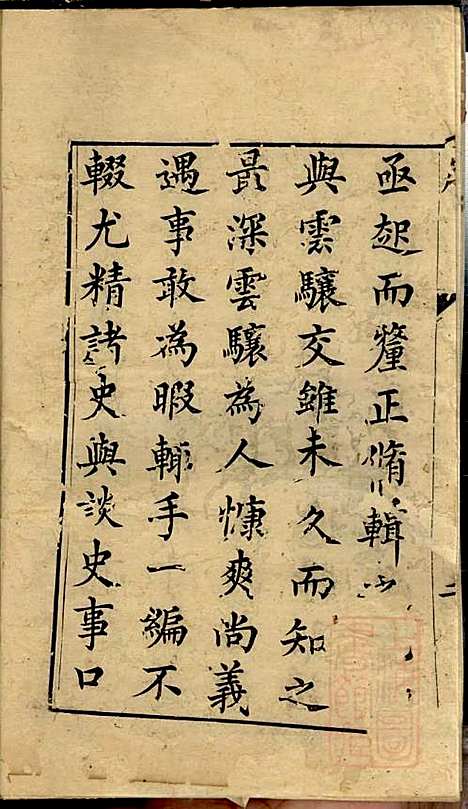 亟起而釐正脩輯
與雲驤交雖未久而知之
最深雲驤為人慷爽尚義
遇事敢為暇輒手一編不
輟尤精諸史與談史事口
二